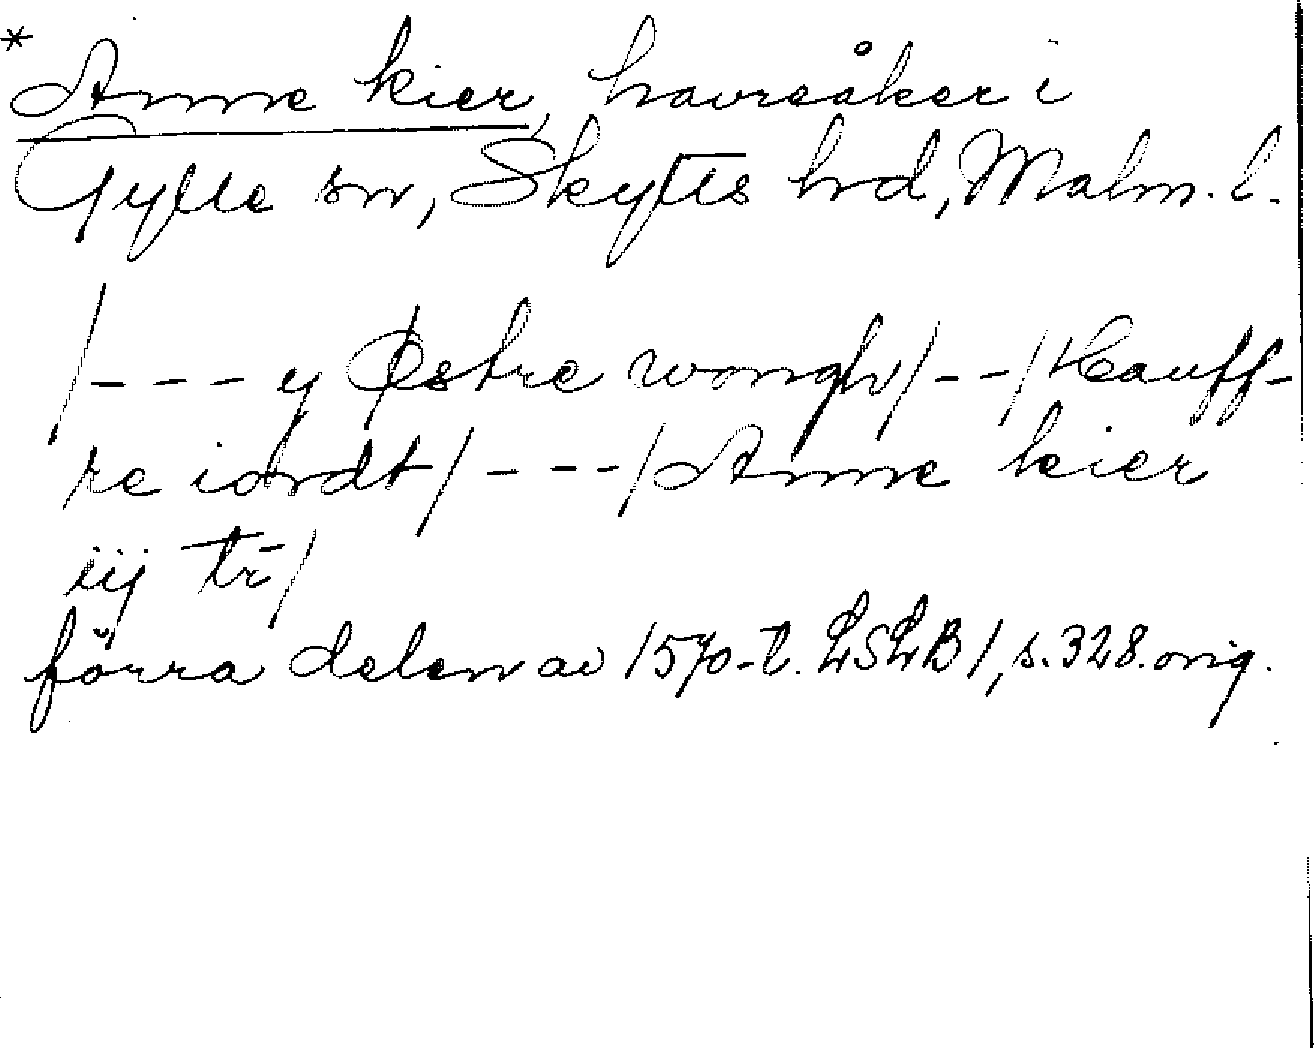 *Anne kier, havreåker i
Gylle sn, Skytts hd, Malm. l.
/--- y Østre wongh/--/Hauff-
re iordt/---/Anne kier
iij tr/
förra delen av 1570-t. LSLB 1, s. 328. orig.